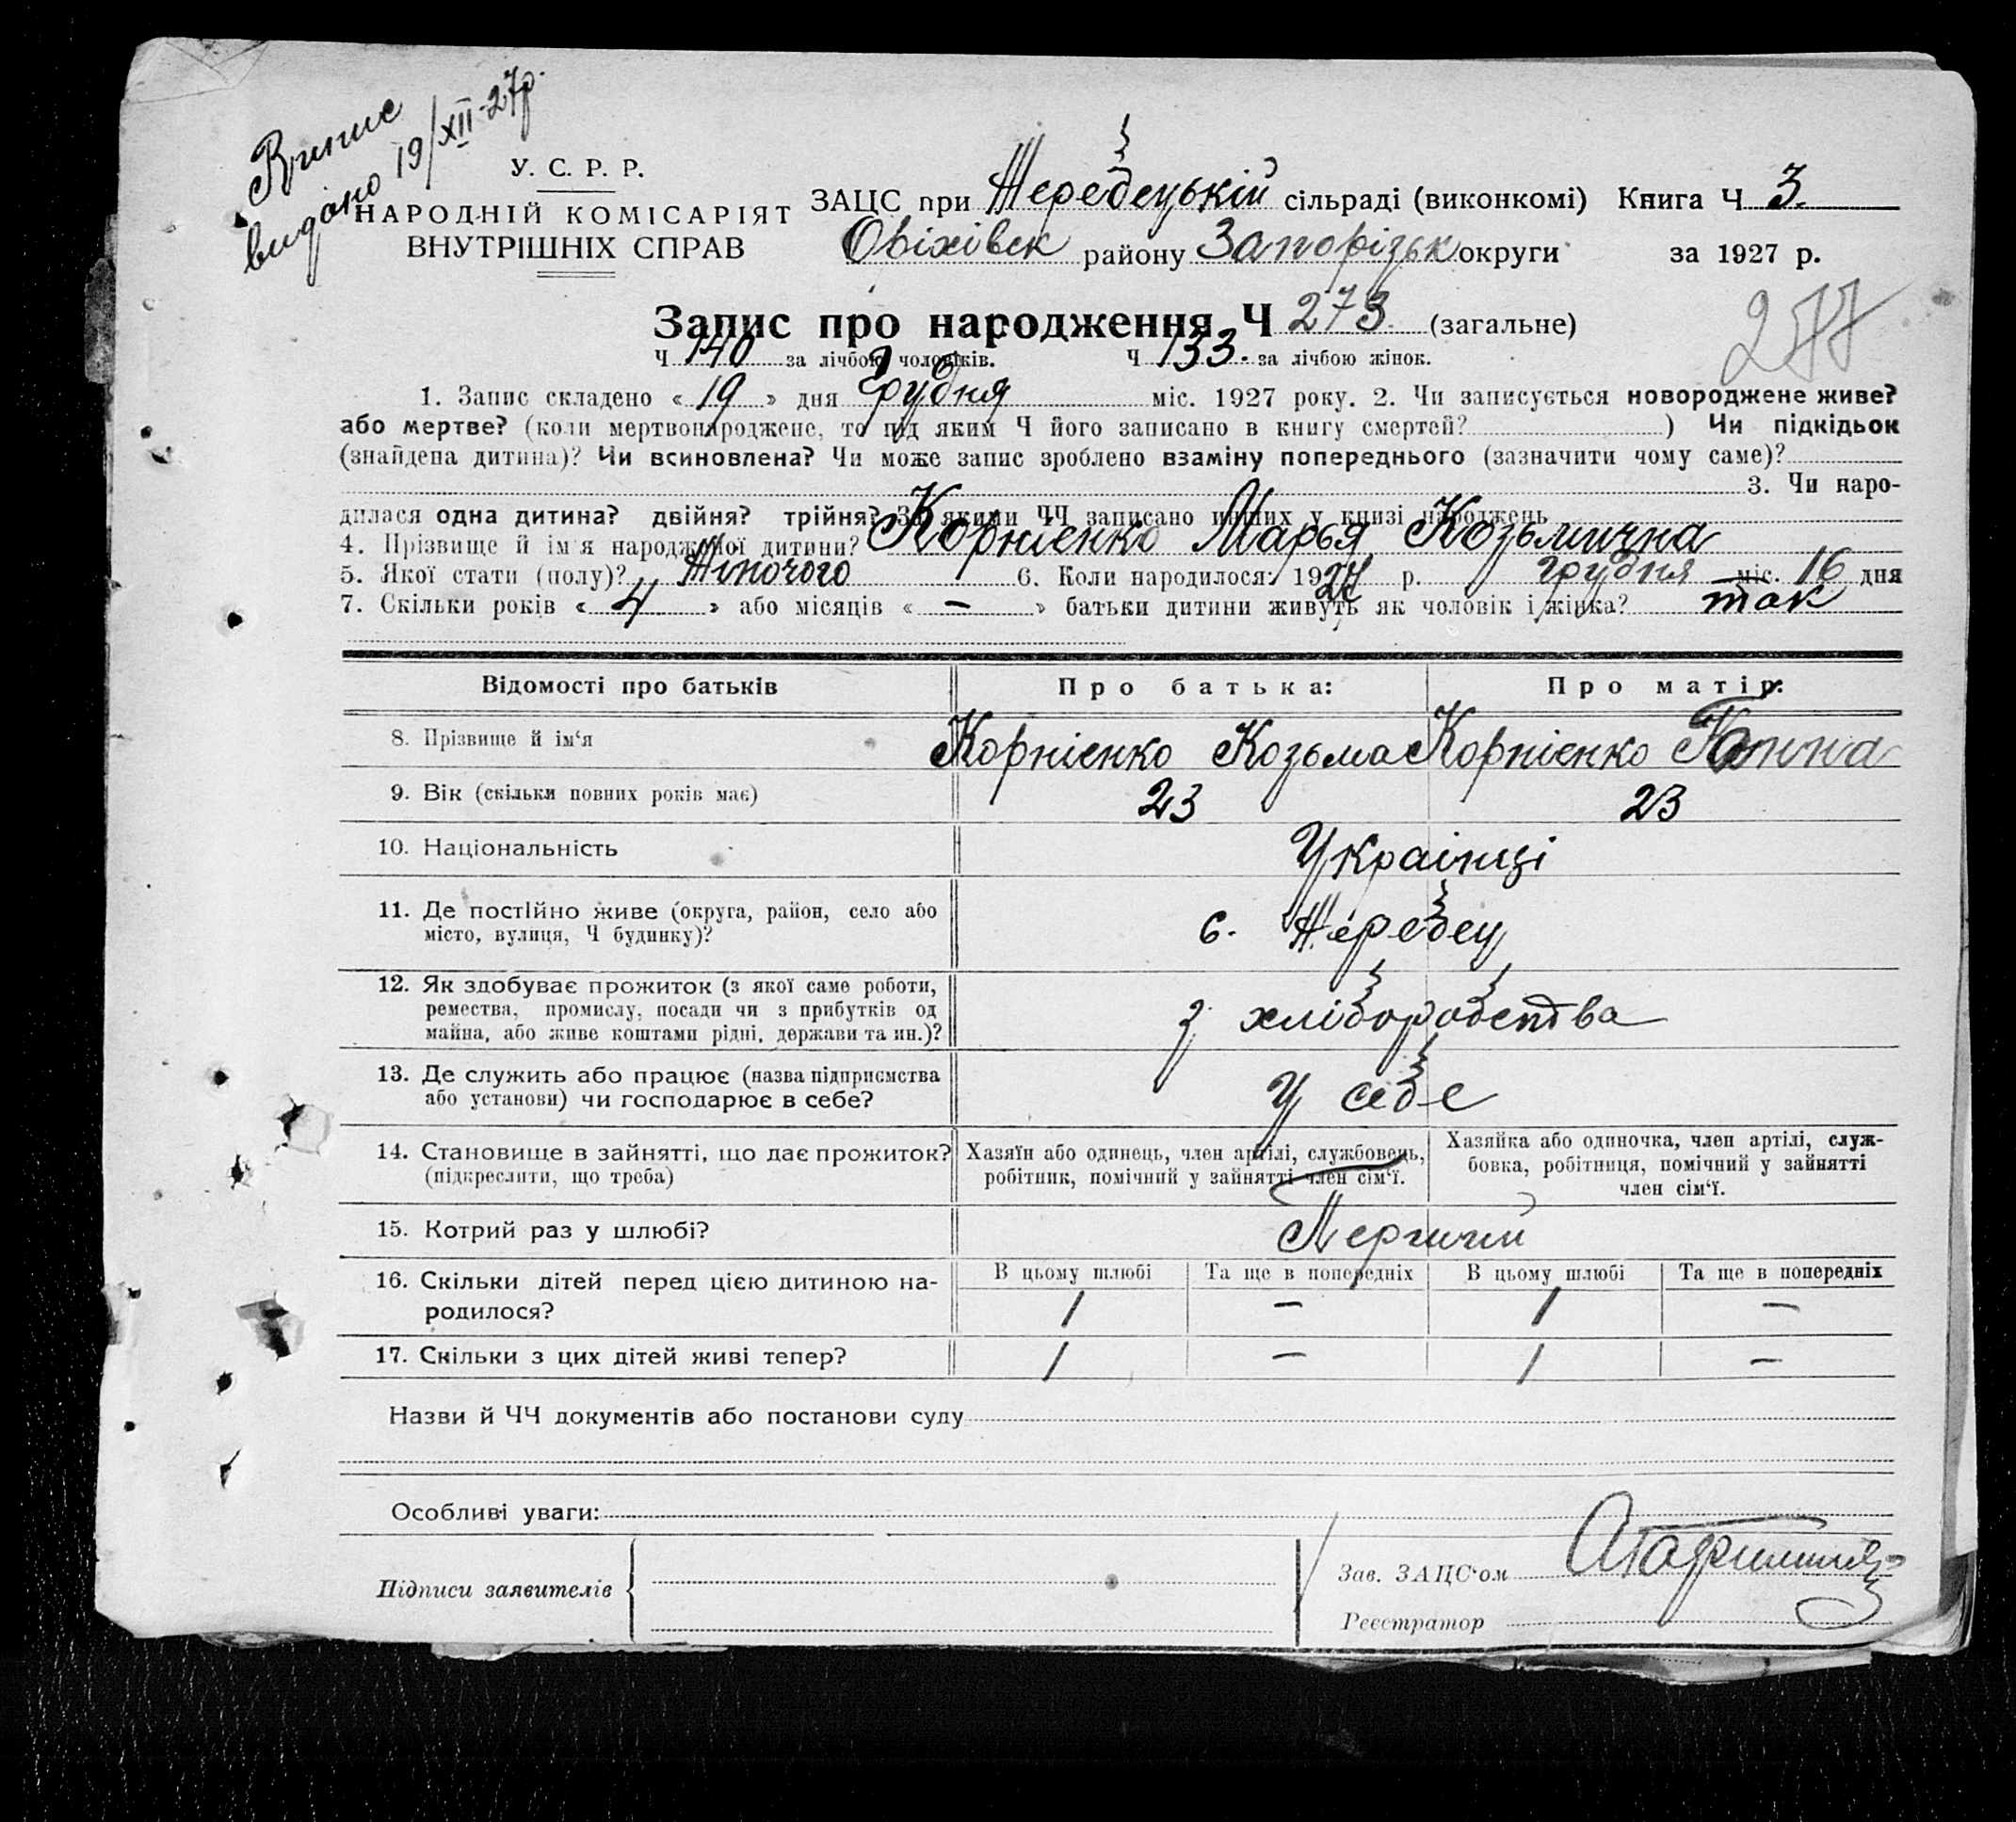 Випис
видано 19/XII-27р.
У. С. Р. Р.
НАРОДНІЙ КОМІСАРІЯТ
ВНУТРІШНІХ СПРАВ
ЗАЦС при Жеребецькій сільраді (виконкомі) Книга Ч 3.
Оріхівськ району Запорізьк округи за 1927 р.
Запис про народження Ч 273 (загальне)
277
Ч 140 за лічбою чоловіків. Ч 133. за лічбою жінок.
1. Запис складено « 19 » дня Грудня міс. 1927 року. 2. Чи записується новороджене живе?
або мертве? (коли мертвонароджене, то під яким Ч його записано в книгу смертей? ) Чи підкідьок
(знайдена дитина)? Чи всиновлена? Чи може запис зроблено взаміну попереднього (зазначити чому саме)?
3. Чи наро-
дилася одна дитина? двійня? трійня? За якими ЧЧ записано инших у книзі народжень
4. Прізвище й ім'я народженої дитини? Корнієнко Марья Козьмична
5. Якої стати (полу)? Жіночого 6. Коли народилося: 1927 р. грудня міс. 16 дня
7. Скільки років « 4 » або місяців « — » батьки дитини живуть як чоловік і жінка? так
Відомості про батьків Про батька: Про матір:
8. Прізвище й ім'я Корнієнко Козьма Корнієнко Ганна
9. Вік (скільки повних років має) 23 23
10. Національність Українці
11. Де постійно живе (округа, район, село або
місто, вулиця, Ч будинку)? с. Жеребец
12. Як здобуває прожиток (з якої саме роботи,
ремества, промислу, посади чи з прибутків од
майна, або живе коштами рідні, держави та ин.)? з хліборобства
13. Де служить або працює (назва підприємства
або установи) чи господарює в себе? У себе
14. Становище в зайнятті, що дає прожиток?
(підкреслити, що треба)
Хазяїн або одинець, член артілі, службовець,
робітник, помічний у зайнятті член сім'ї.
Хазяйка або одиночка, член артілі, служ-
бовка, робітниця, помічний у зайнятті
член сім'ї.
15. Котрий раз у шлюбі? Перший
16. Скільки дітей перед цією дитиною на-
родилося?
В цьому шлюбі Та ще в попередніх В цьому шлюбі Та ще в попередніх
1 — 1 —
17. Скільки з цих дітей живі тепер? 1 — 1 —
Назви й ЧЧ документів або постанови суду
Особливі уваги:
Підписи заявителів
Зав. ЗАЦС'ом
Реєстратор